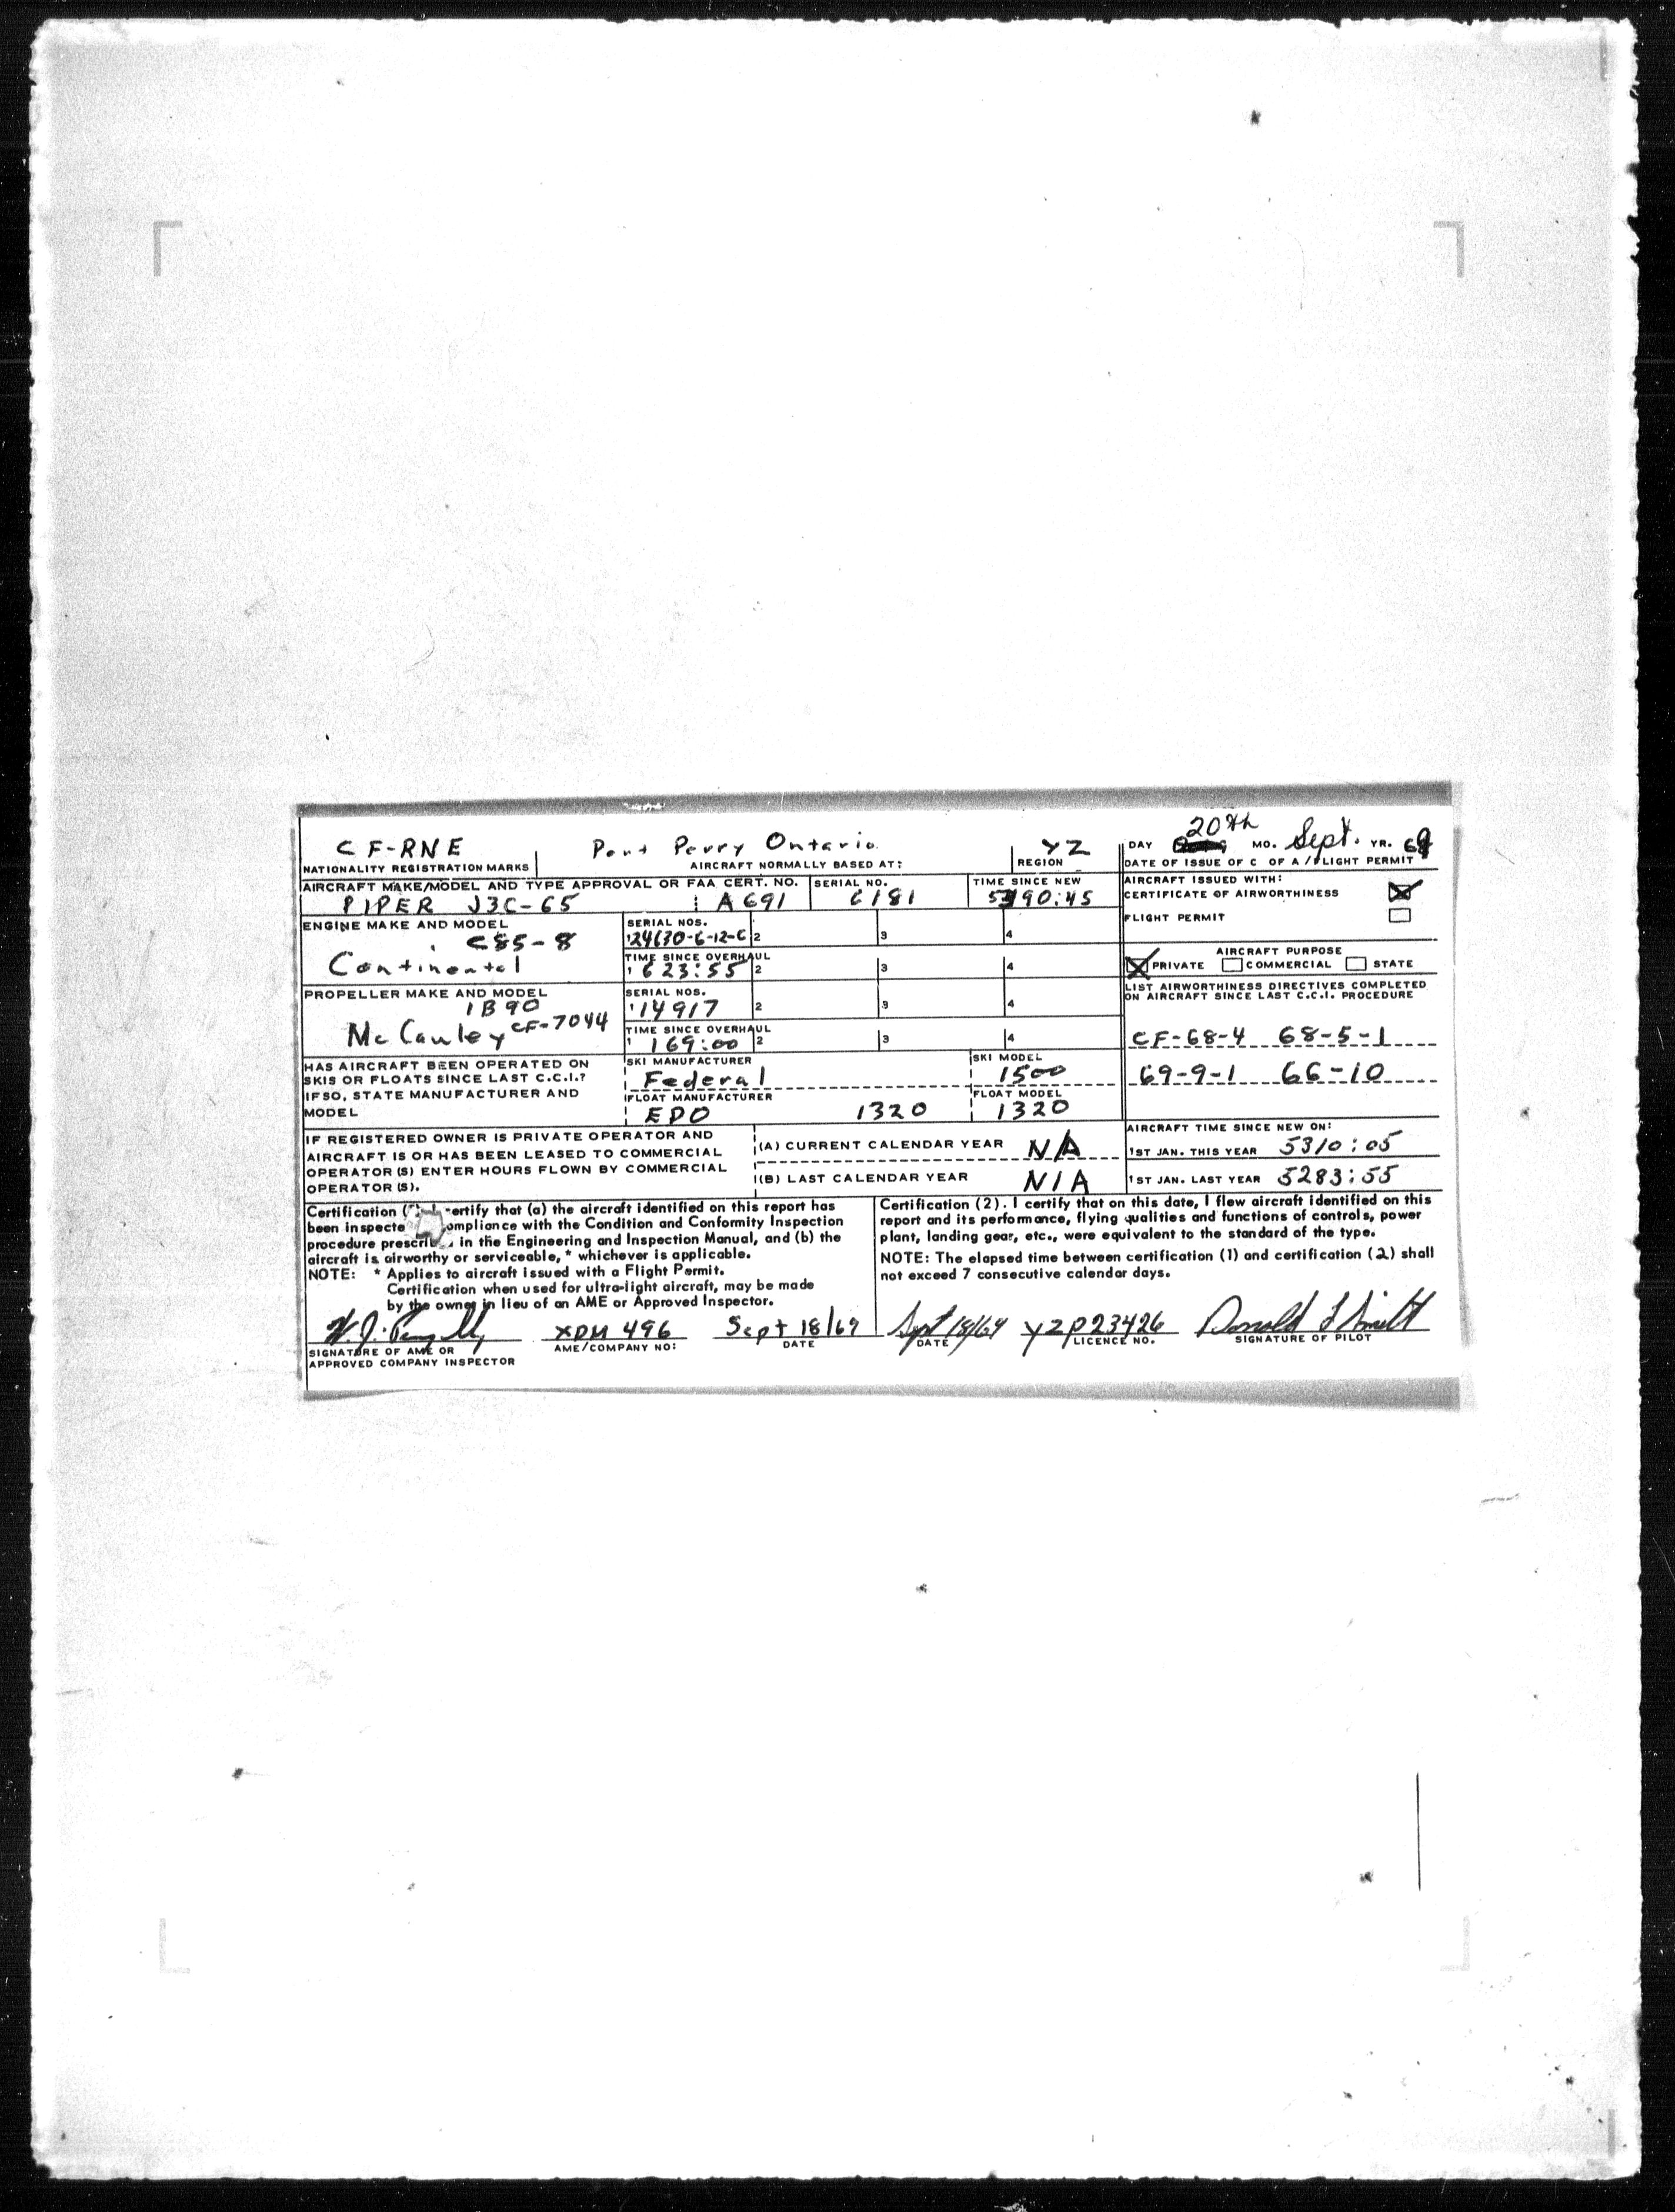 CF-RNE Port Perry Ontario YZ DAY 20th MO. Sept. YR. 69
NATIONALITY REGISTRATION MARKS AIRCRAFT NORMALLY BASED AT: REGION DATE OF ISSUE OF C OF A/FLIGHT PERMIT
AIRCRAFT MAKE/MODEL AND TYPE APPROVAL OR FAA CERT. NO. SERIAL NO. TIME SINCE NEW AIRCRAFT ISSUED WITH:
PIPER J3C-65 A691 6181 5390:45 CERTIFICATE OF AIRWORTHINESS
ENGINE MAKE AND MODEL SERIAL NOS. FLIGHT PERMIT
C85-8 1 24630-6-12-C 2 3 4
Continental TIME SINCE OVERHAUL AIRCRAFT PURPOSE
1 623:55 2 3 4 PRIVATE COMMERCIAL STATE
PROPELLER MAKE AND MODEL SERIAL NOS. LIST AIRWORTHINESS DIRECTIVES COMPLETED
1B90 1 14917 2 3 4 ON AIRCRAFT SINCE LAST C.C.I. PROCEDURE
McCauley CF-7044 TIME SINCE OVERHAUL
1 169:00 2 3 4 CF-68-4 68-5-1
HAS AIRCRAFT BEEN OPERATED ON SKI MANUFACTURER SKI MODEL
SKIS OR FLOATS SINCE LAST C.C.I.? Federal 1500 69-9-1 66-10
IF SO, STATE MANUFACTURER AND FLOAT MANUFACTURER FLOAT MODEL
MODEL EDO 1320 1320
IF REGISTERED OWNER IS PRIVATE OPERATOR AND AIRCRAFT TIME SINCE NEW ON:
AIRCRAFT IS OR HAS BEEN LEASED TO COMMERCIAL (A) CURRENT CALENDAR YEAR N/A 1ST JAN. THIS YEAR 5310:05
OPERATOR (S) ENTER HOURS FLOWN BY COMMERCIAL
OPERATOR (S). (B) LAST CALENDAR YEAR N/A 1ST JAN. LAST YEAR 5283:55
Certification ( ertify that (a) the aircraft identified on this report has
been inspecte ompliance with the Condition and Conformity Inspection
procedure prescrib in the Engineering and Inspection Manual, and (b) the
aircraft is airworthy or serviceable, * whichever is applicable.
NOTE: * Applies to aircraft issued with a Flight Permit.
Certification when used for ultra-light aircraft, may be made
by the owner in lieu of an AME or Approved Inspector.
Certification (2). I certify that on this date, I flew aircraft identified on this
report and its performance, flying qualities and functions of controls, power
plant, landing gear, etc., were equivalent to the standard of the type.
NOTE: The elapsed time between certification (1) and certification (2) shall
not exceed 7 consecutive calendar days.
XDM 496 Sept 18/69 Sept 18/69 YZP23426 Donald Smith
SIGNATURE OF AME OR AME/COMPANY NO: DATE DATE LICENCE NO. SIGNATURE OF PILOT
APPROVED COMPANY INSPECTOR